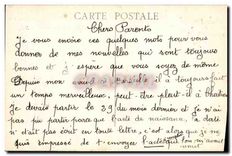 CARTE POSTALE
Chers Parents
Je vous envoie ces quelques mots pour vous
donner de mes nouvelles qui sont toujours
bonnes et j espere que vous soyez de même
Depuis mon il a toujours fait
un temps merveilleux, peut être plaît il à
Je devais partir le 29 du mois dernier et je n'ai
pas pu partir parce que la date de naissance, la date
n'était pas écrit en toute lettre, c'est alors que je ne
suis empressé de t'envoyer